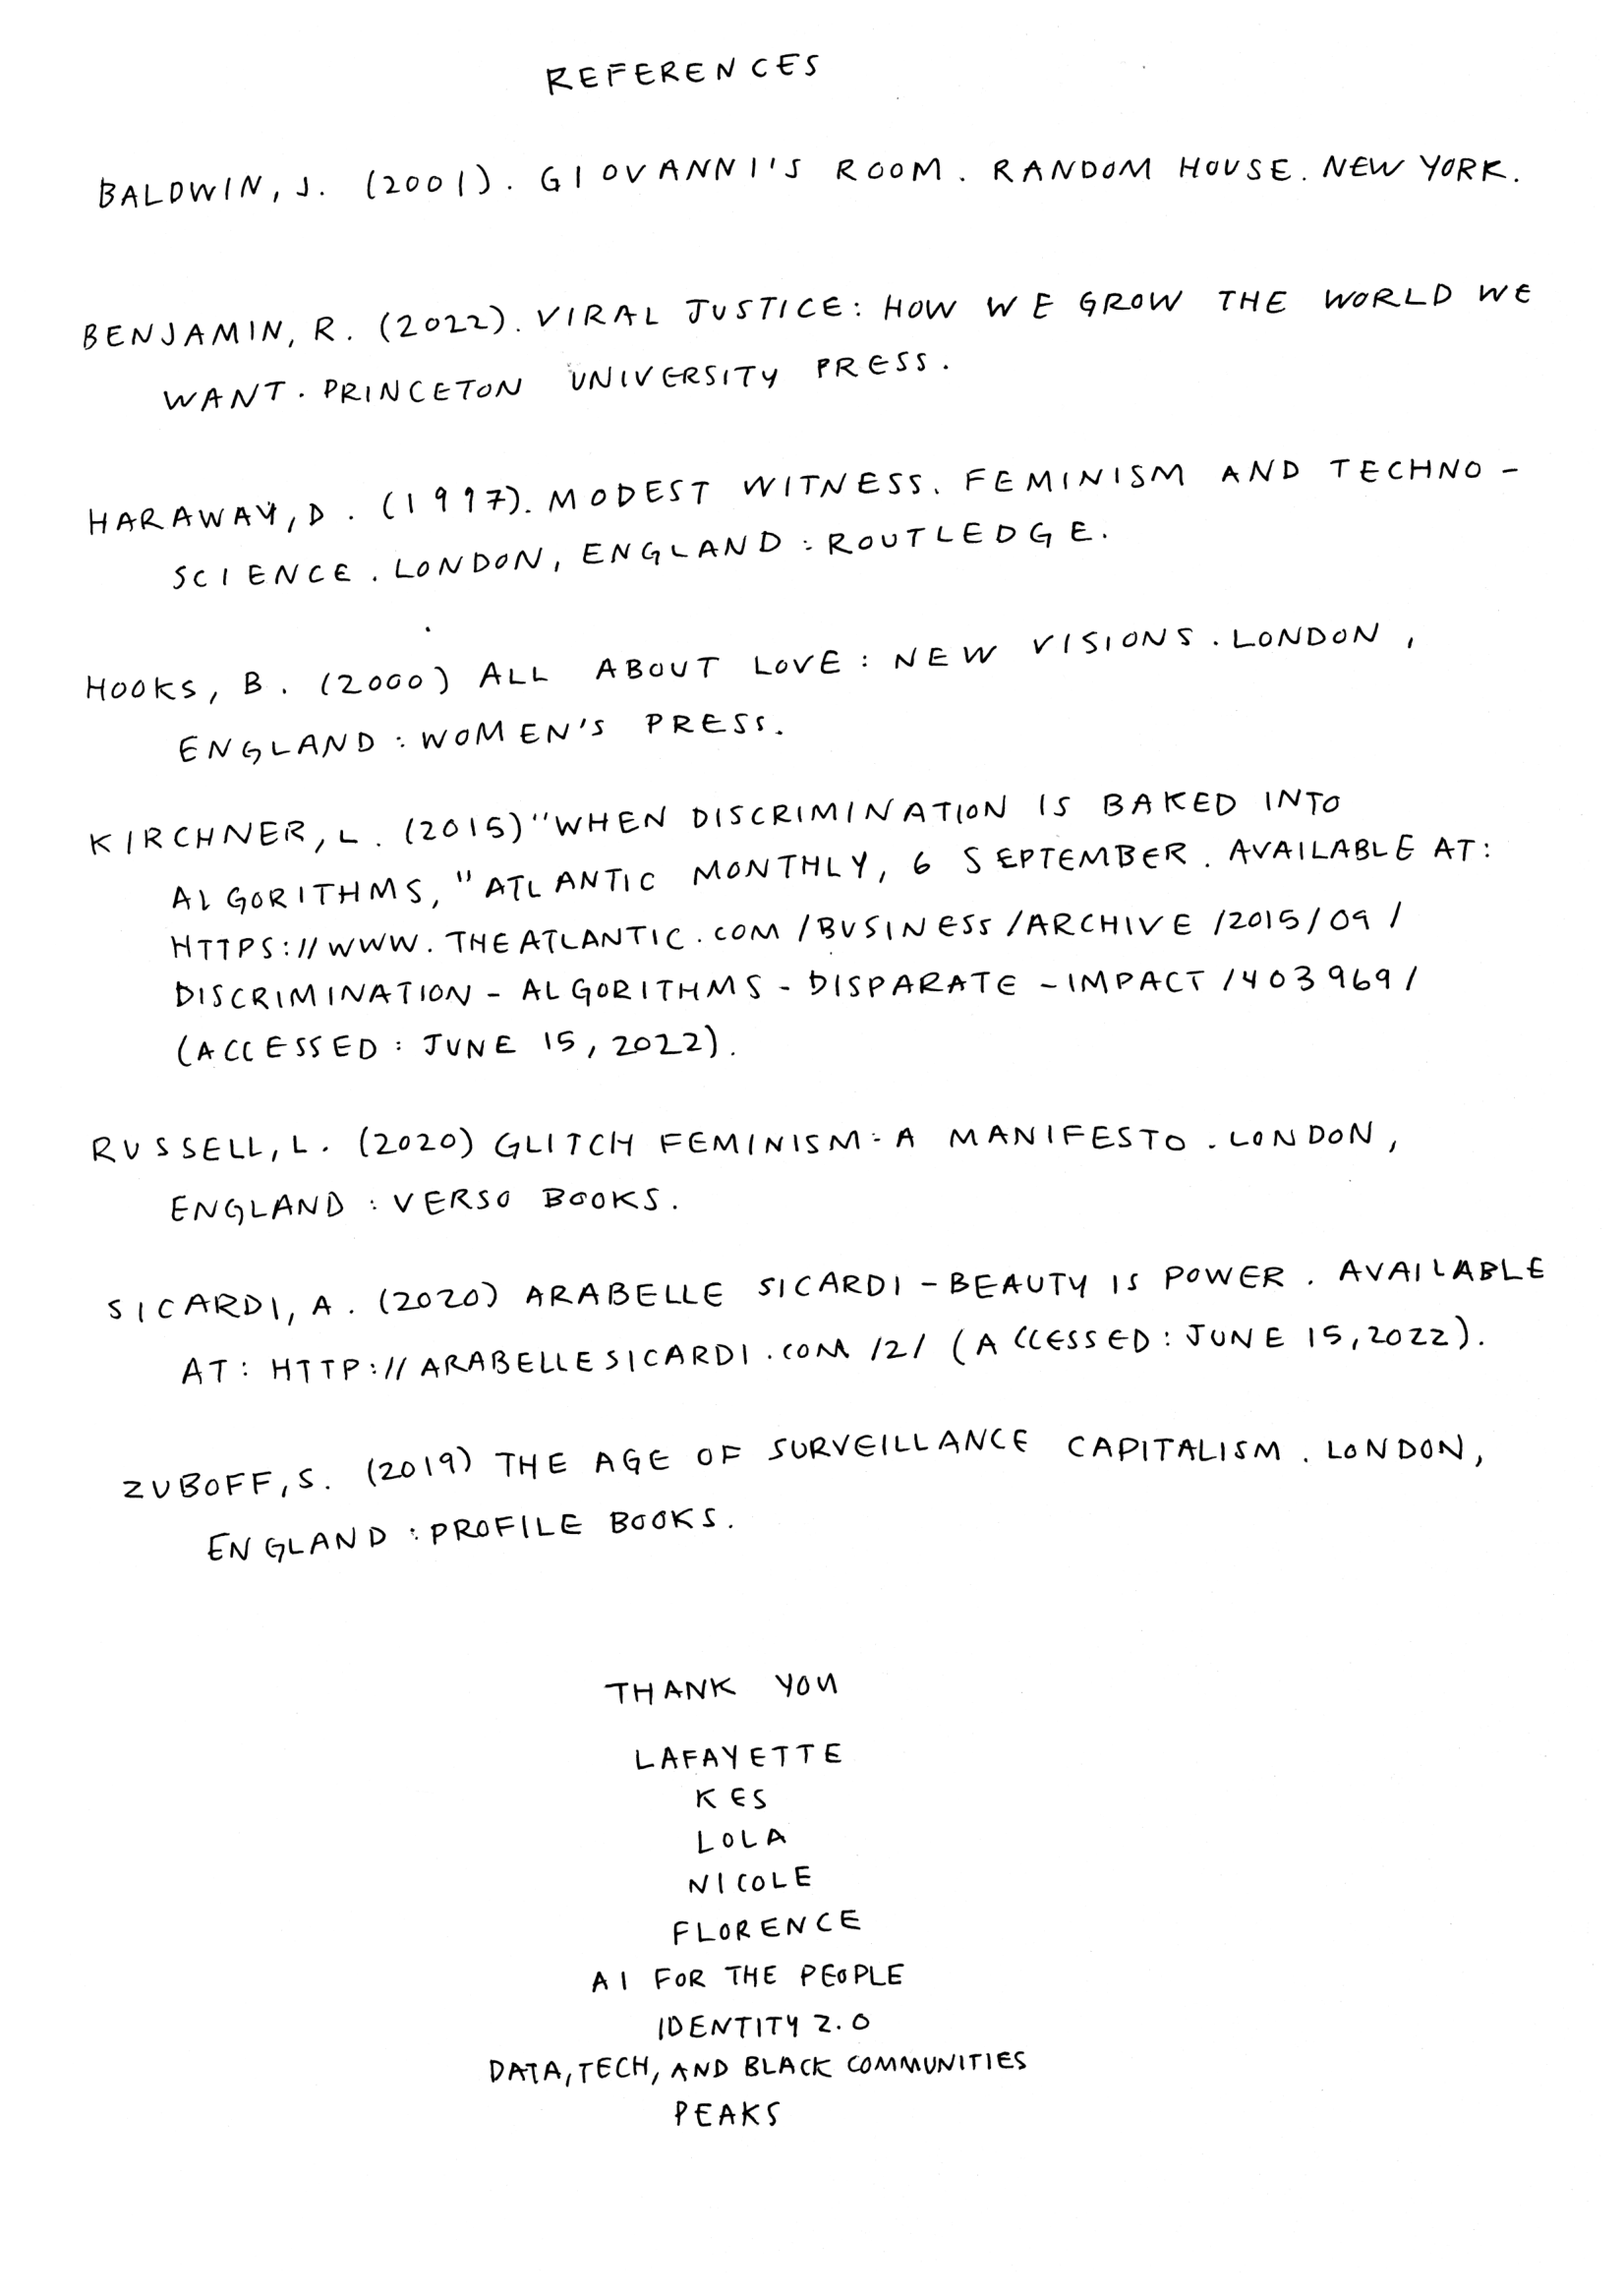 REFERENCES
BALDWIN, J. (2001). GIOVANNI'S ROOM. RANDOM HOUSE. NEW YORK.
BENJAMIN, R. (2022). VIRAL JUSTICE: HOW WE GROW THE WORLD WE
WANT. PRINCETON UNIVERSITY PRESS.
HARAWAY, D. (1997). MODEST WITNESS. FEMINISM AND TECHNO-
SCIENCE. LONDON, ENGLAND: ROUTLEDGE.
HOOKS, B. (2000) ALL ABOUT LOVE: NEW VISIONS. LONDON,
ENGLAND: WOMEN'S PRESS.
KIRCHNER, L. (2015) "WHEN DISCRIMINATION IS BAKED INTO
ALGORITHMS," ATLANTIC MONTHLY, 6 SEPTEMBER. AVAILABLE AT:
HTTPS://WWW.THEATLANTIC.COM/BUSINESS/ARCHIVE/2015/09/
DISCRIMINATION-ALGORITHMS-DISPARATE-IMPACT/403969/
(ACCESSED: JUNE 15, 2022).
RUSSELL, L. (2020) GLITCH FEMINISM: A MANIFESTO. LONDON,
ENGLAND: VERSO BOOKS.
SICARDI, A. (2020) ARABELLE SICARDI - BEAUTY IS POWER. AVAILABLE
AT: HTTP://ARABELLESICARDI.COM/2/ (ACCESSED: JUNE 15, 2022).
ZUBOFF, S. (2019) THE AGE OF SURVEILLANCE CAPITALISM. LONDON,
ENGLAND: PROFILE BOOKS.
THANK YOU
LAFAYETTE
KES
LOLA
NICOLE
FLORENCE
AI FOR THE PEOPLE
IDENTITY 2.0
DATA, TECH, AND BLACK COMMUNITIES
PEAKS